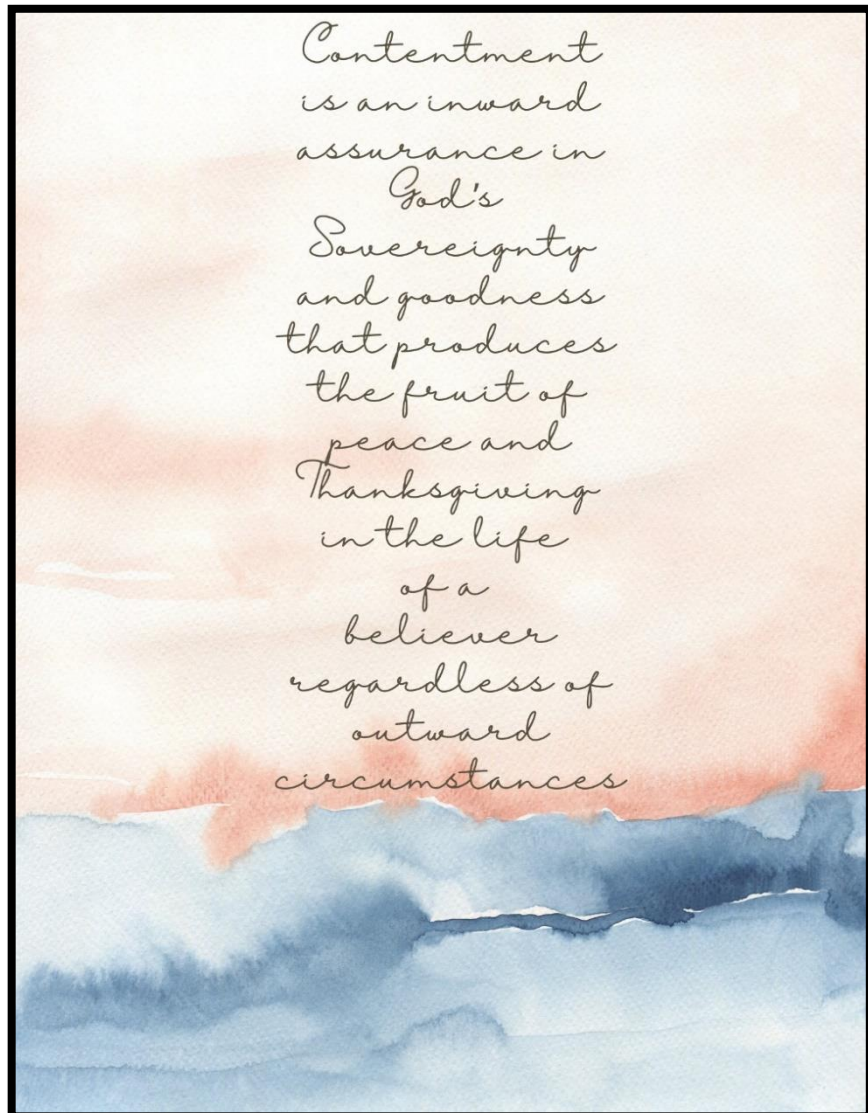 Contentment
is an inward
assurance in
God's
Sovereignty
and goodness
that produces
the fruit of
peace and
Thanksgiving
in the life
of a
believer
regardless of
outward
circumstances